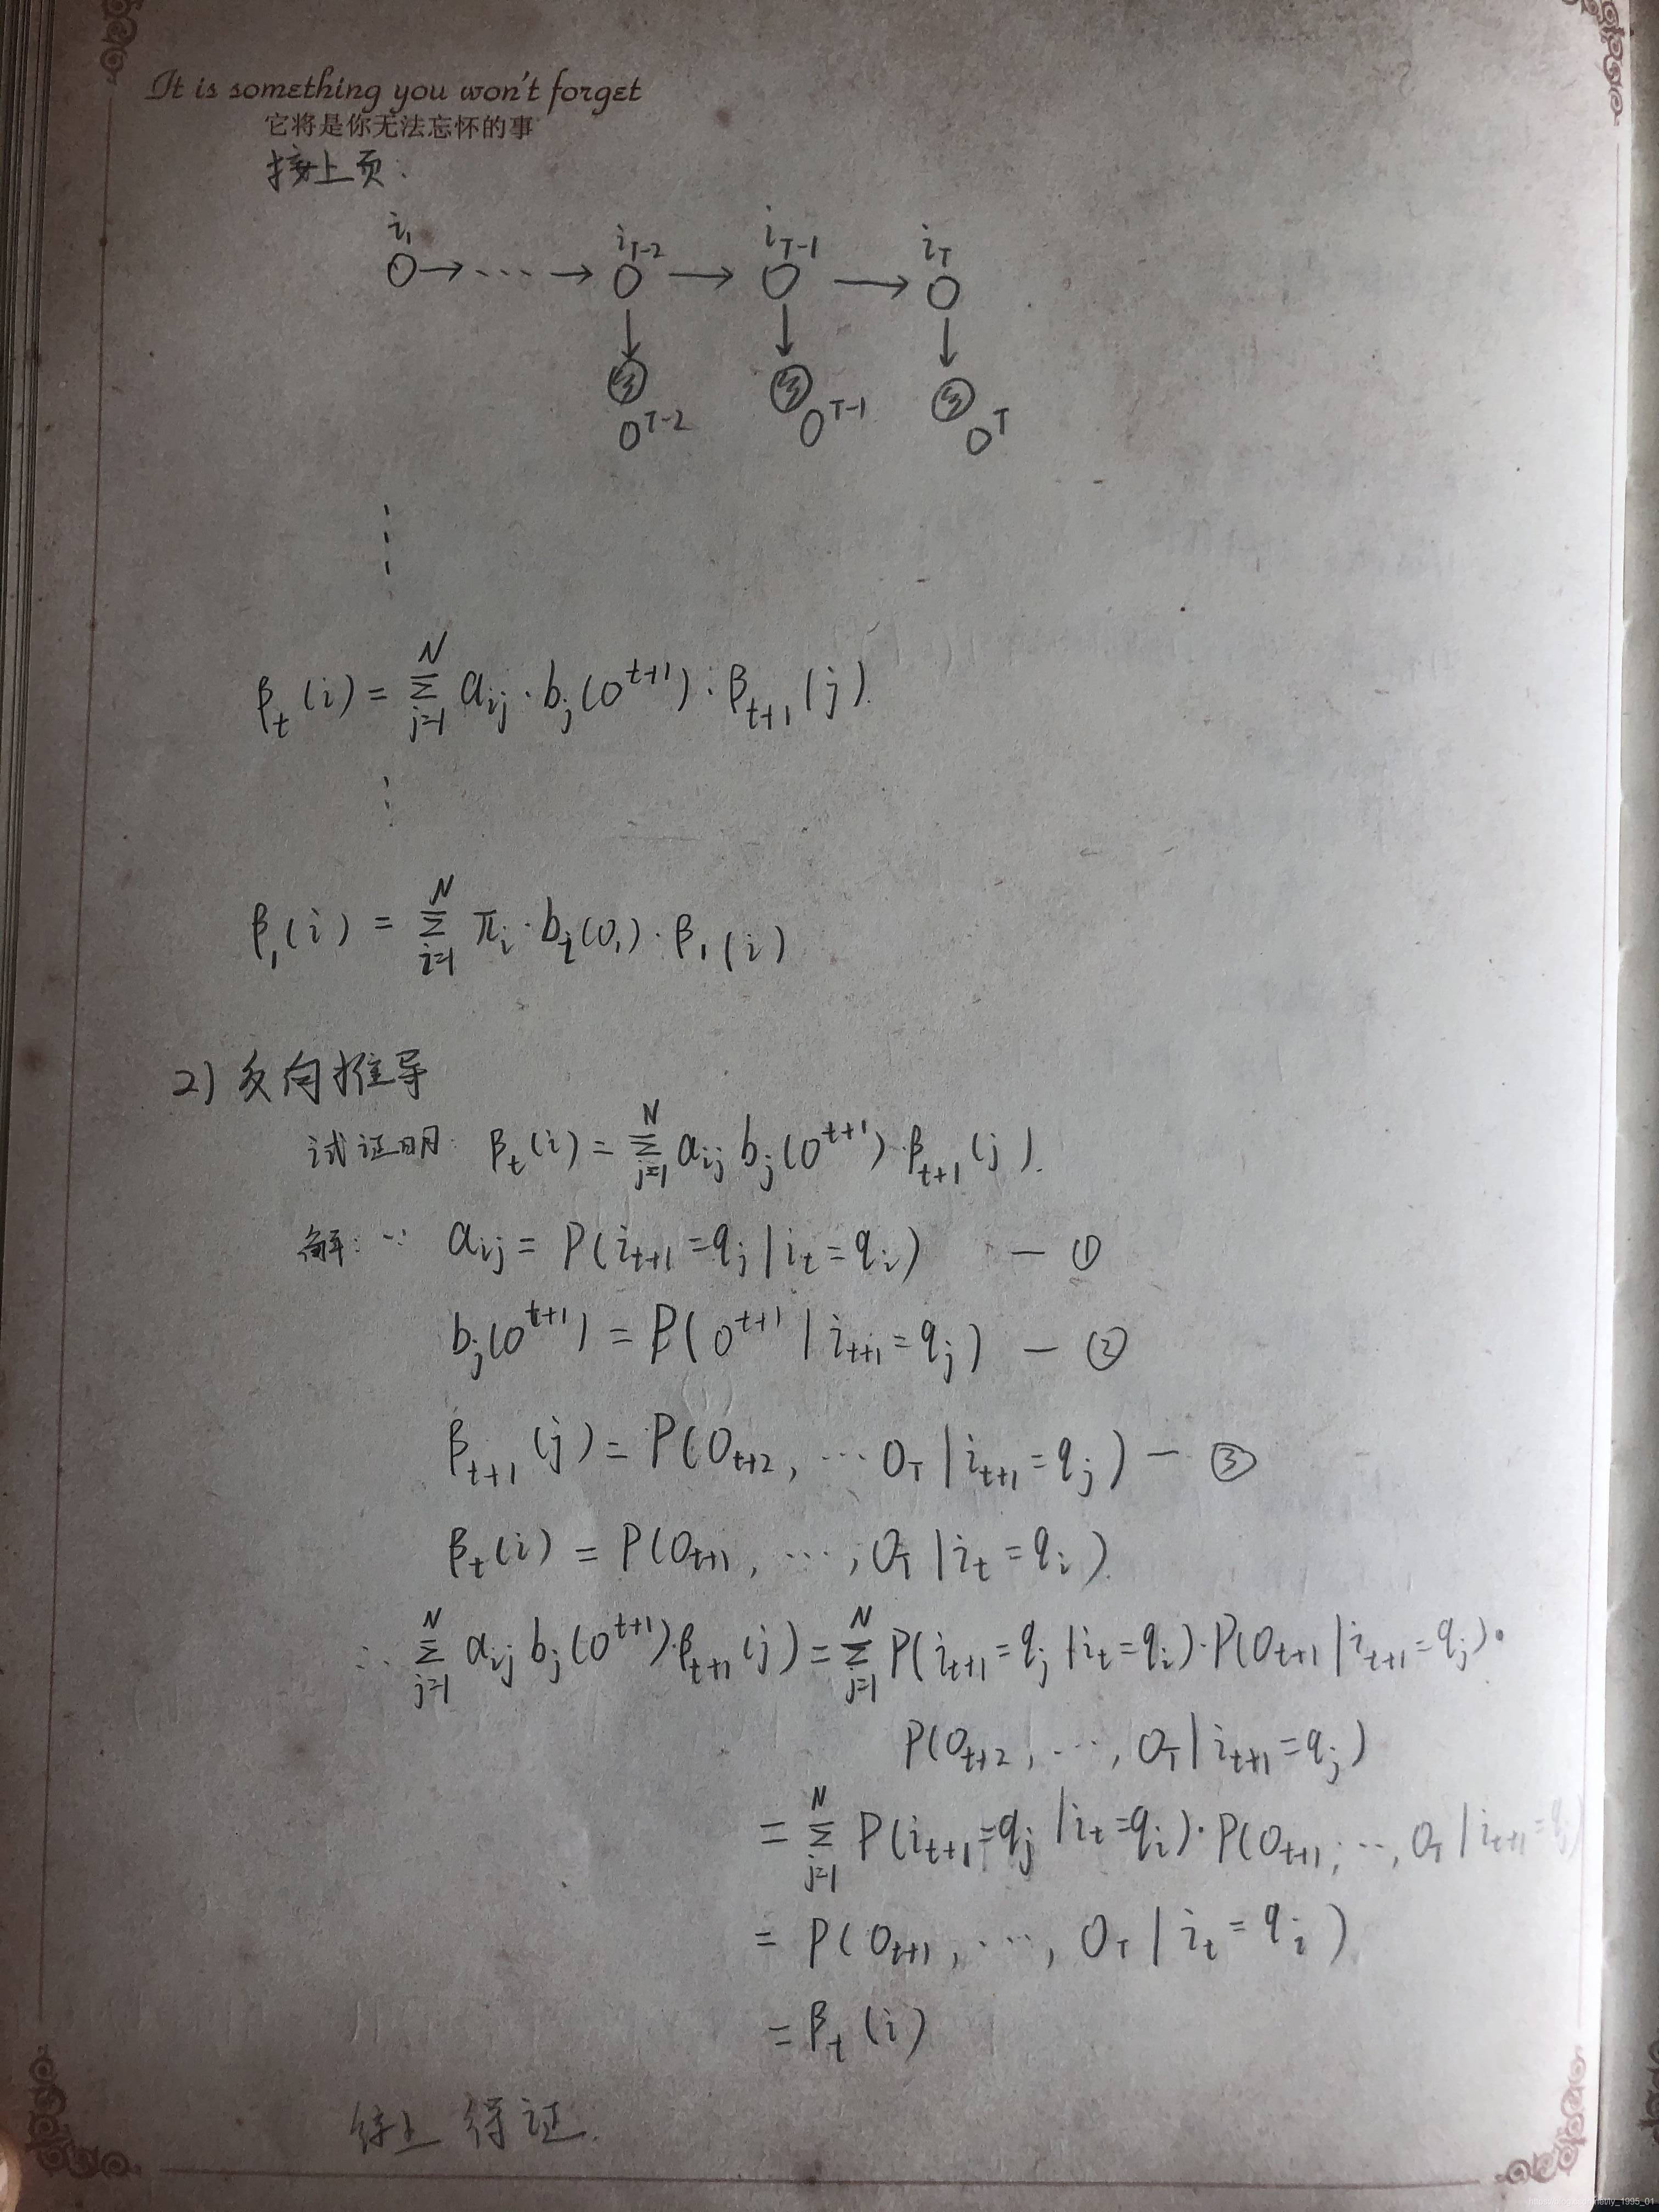 It is something you won't forget
它将是你无法忘怀的事
接上页:
i₁ i_{T-2} i_{T-1} i_T
O → ... → O → O → O
O^{T-2} O^{T-1} O^T
β_t(i) = Σ_{j=1}^{N} a_{ij} · b_j(O^{t+1}) · β_{t+1}(j).
β₁(i) = Σ_{i=1}^{N} π_i · b_i(O₁) · β₁(i)
2) 反向推导
试证明: β_t(i) = Σ_{j=1}^{N} a_{ij} b_j(O^{t+1}) · β_{t+1}(j).
解: ∵ a_{ij} = P(i_{t+1} = q_j | i_t = q_i) — ①
b_j(O^{t+1}) = P(O^{t+1} | i_{t+1} = q_j) — ②
β_{t+1}(j) = P(O_{t+2}, ... O_T | i_{t+1} = q_j) — ③
β_t(i) = P(O_{t+1}, ..., O_T | i_t = q_i).
∴ Σ_{j=1}^{N} a_{ij} b_j(O^{t+1}) · β_{t+1}(j) = Σ_{j=1}^{N} P(i_{t+1} = q_j | i_t = q_i) · P(O_{t+1} | i_{t+1} = q_j) ·
P(O_{t+2}, ..., O_T | i_{t+1} = q_j)
= Σ_{j=1}^{N} P(i_{t+1} = q_j | i_t = q_i) · P(O_{t+1}, ..., O_T | i_{t+1} = q_j)
= P(O_{t+1}, ..., O_T | i_t = q_i)
= β_t(i)
综上 得证.